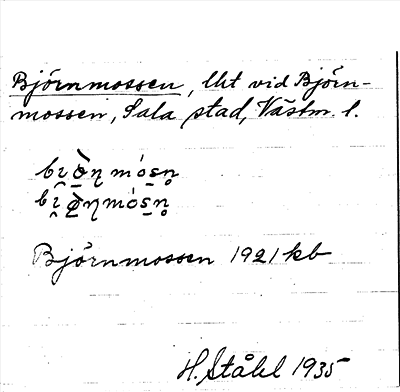 Björnmossen, lht vid Björn-
mossen, Sala stad, Västm. l.
Björnmossen 1921 kb
H. Ståhl 1935